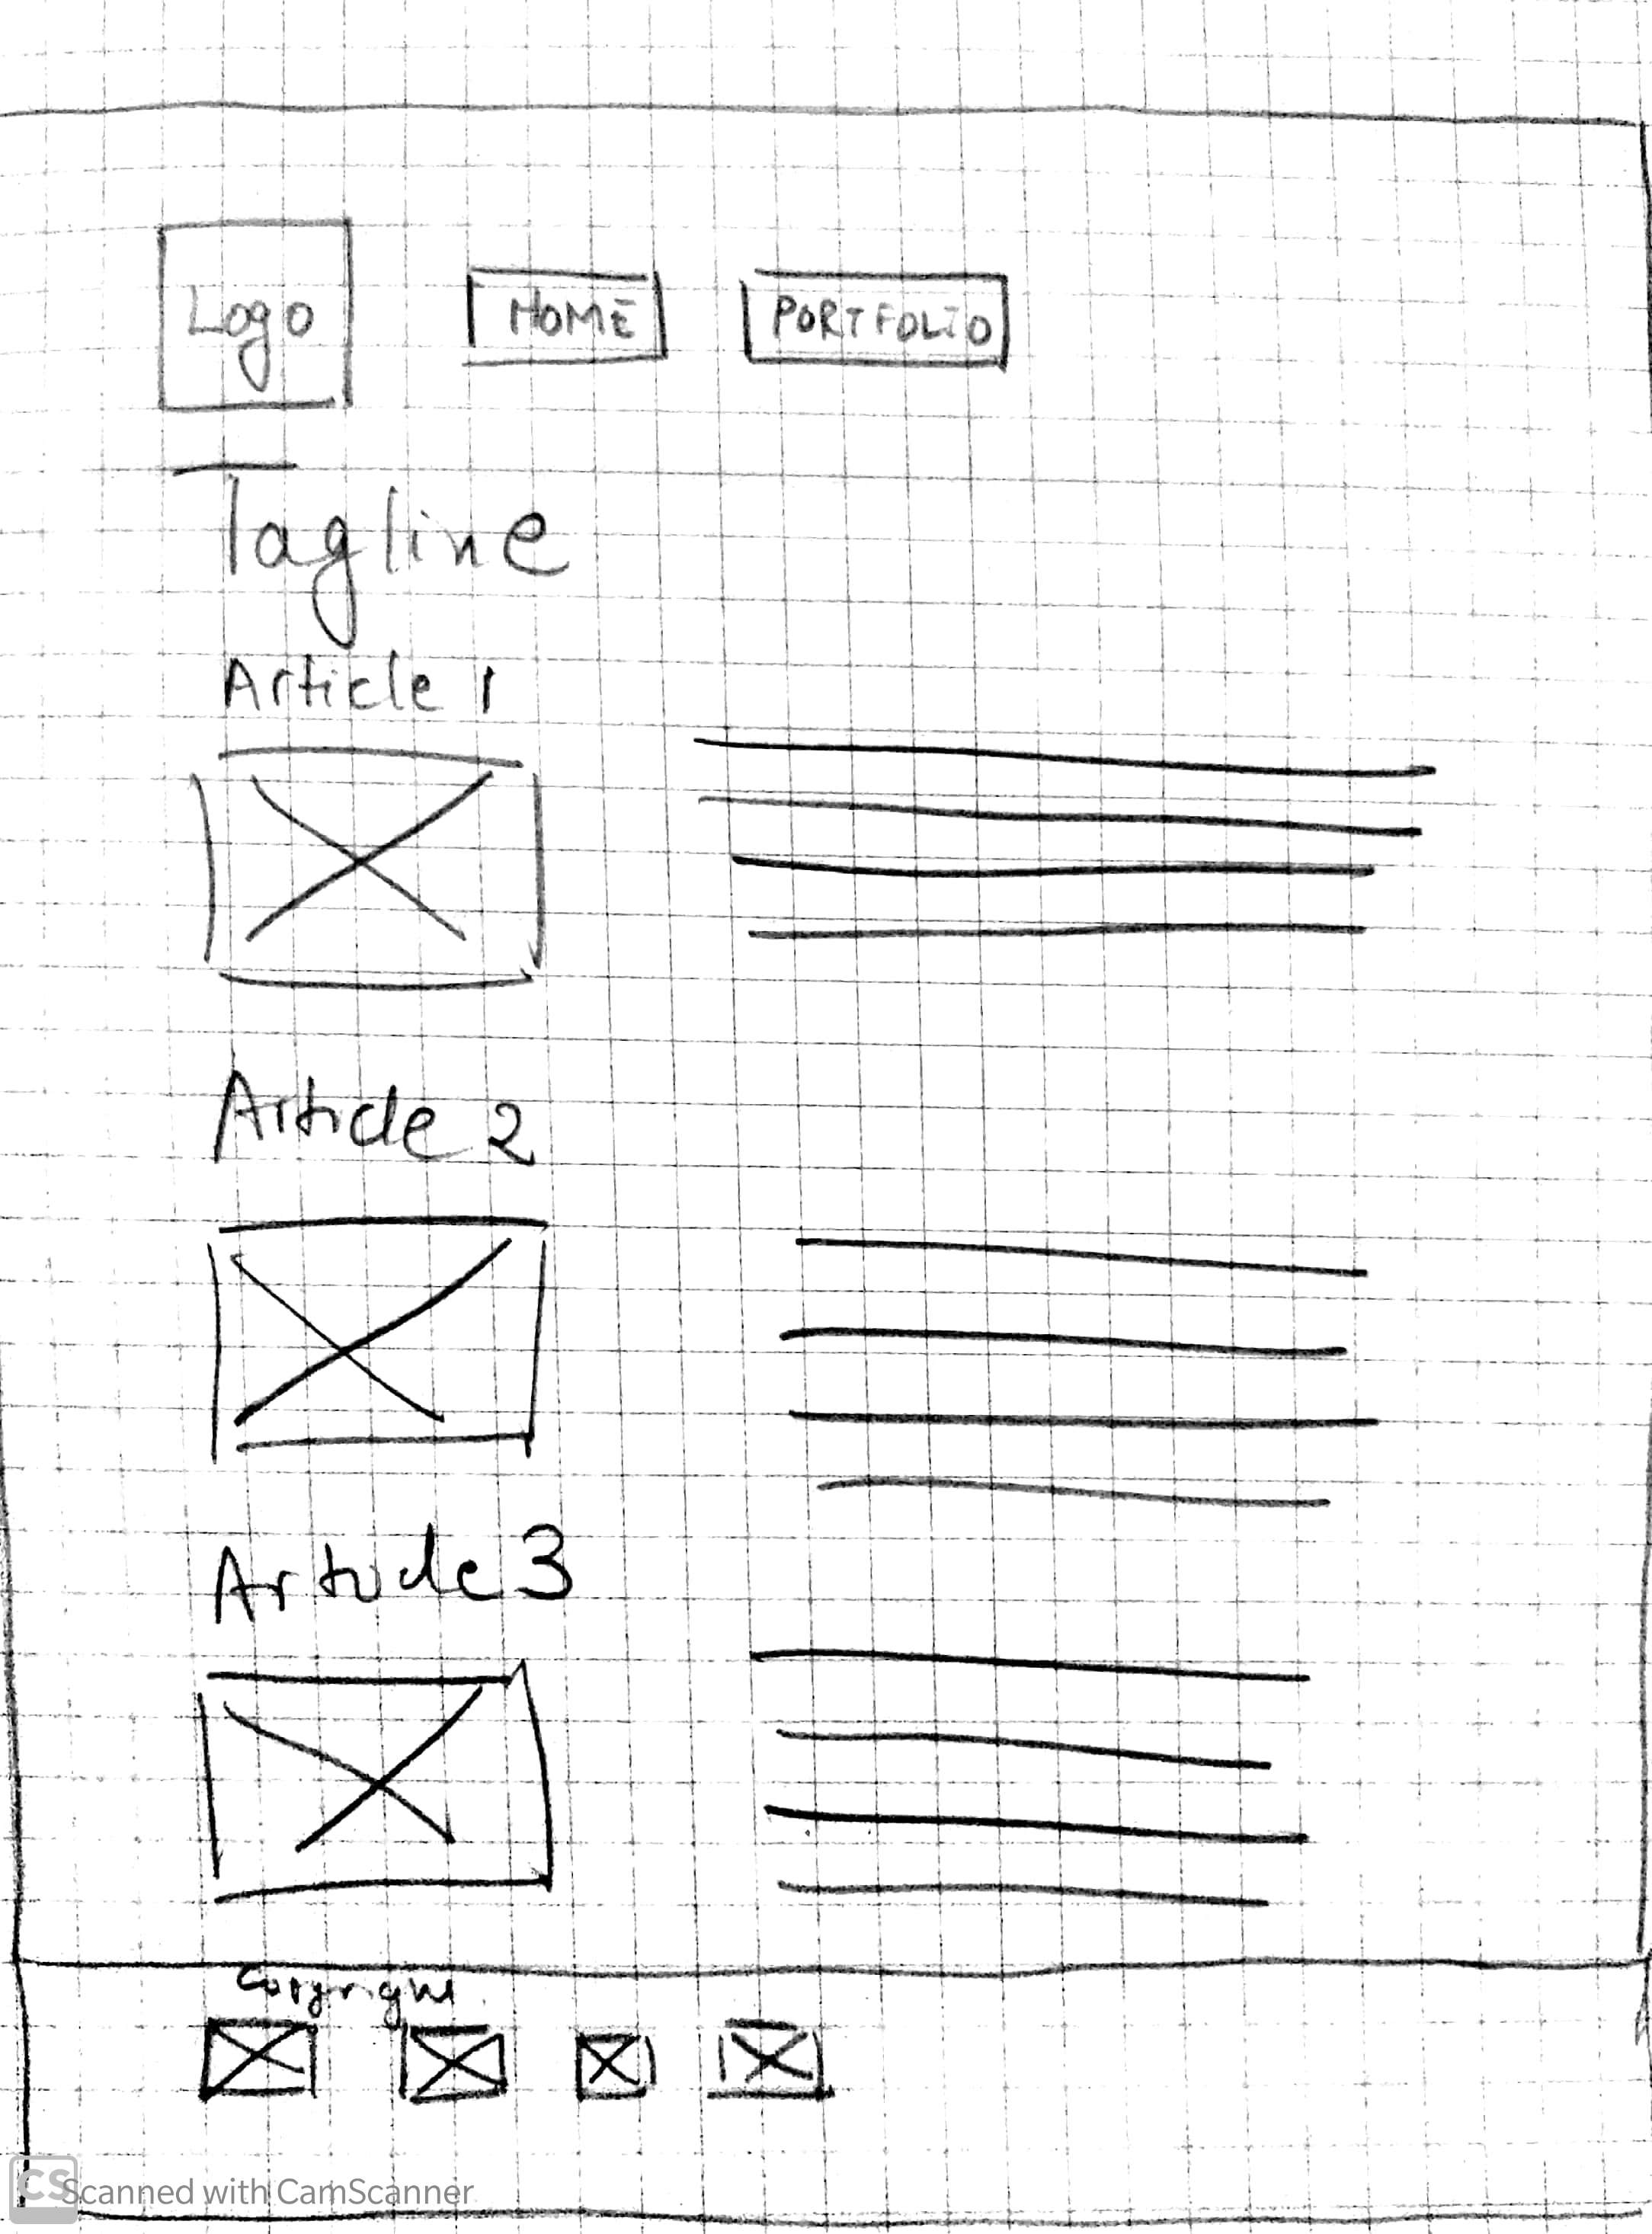 Logo
HOME
PORTFOLIO
Tagline
Article 1
Article 2
Article 3
Copyright
CS
Scanned with CamScanner